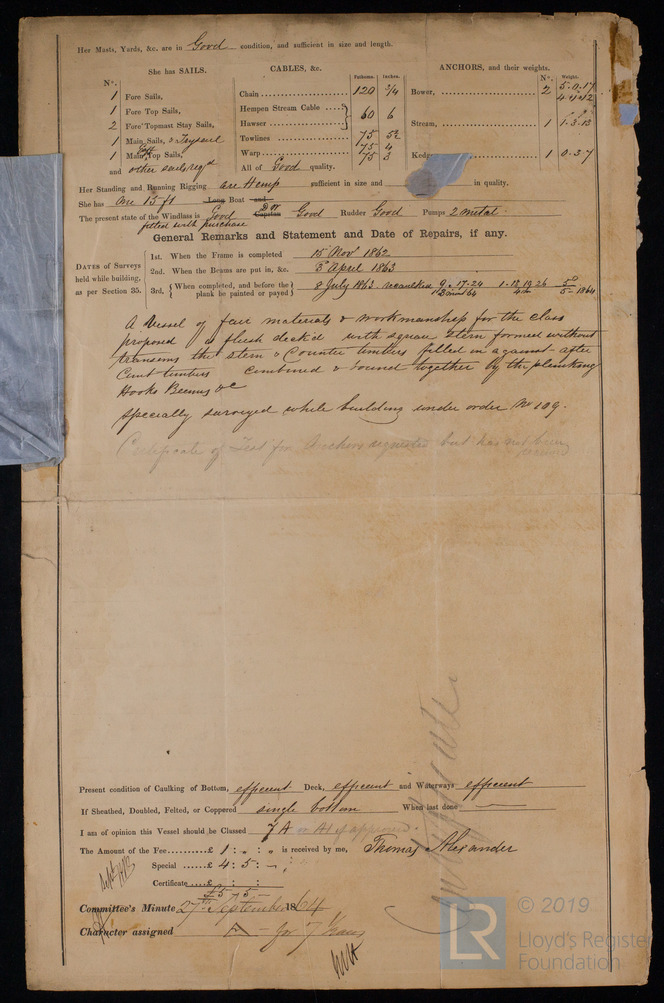 Her Masts, Yards, &c. are in Good condition, and sufficient in size and length.
She has SAILS.
CABLES, &c.
ANCHORS, and their weights.
N°.
Fathoms.
Inches.
N°.
Weight.
1 Fore Sails,
Chain 120 3/4
Bower, 2 5.0.17
1 Fore Top Sails,
Hempen Stream Cable
4.1.12
2 Fore Topmast Stay Sails,
Hawser 60 6
Stream, 1 1.3.13
1 Main Sails, & Trysail
Towlines 75 5½
75 4
1 Main Top Sails,
Warp 75 3
Kedg 1 0.3.7
and other sails reqd
All of Good quality.
Her Standing and Running Rigging are Hemp sufficient in size and in quality.
She has one 15 ft Long Boat and
The present state of the Windlass is Good Capstan Good Rudder Good Pumps 2 metal
fitted with purchase
General Remarks and Statement and Date of Repairs, if any.
DATES of Surveys held while building, as per Section 35.
1st. When the Frame is completed 15 Novr 1862
2nd. When the Beams are put in, &c. 3d April 1863
3rd, When completed, and before the plank be painted or payed 8 July 1863 recaulked 9.17.24 1864
A Vessel of fair materials & workmanship for the class
proposed is flush deck'd with square stern formed without
transoms the stern & Counter timbers filled in against after
Cant timbers combined & bound together by the planking
Hooks Beams &c
Specially surveyed while building under order No 109.
Certificate of Test for Anchors requested but has not been
received
Present condition of Caulking of Bottom, efficient Deck, efficient and Waterways efficient
If Sheathed, Doubled, Felted, or Coppered single bottom When last done —
I am of opinion this Vessel should be Classed 7 A or A1 if approved.
The Amount of the Fee £ 1 : " : " is received by me, Thomas Alexander
Special £ 4 : 5 : –
Certificate £
£5 – 5 –
Committee's Minute 27th September 1864
Character assigned A – for 7 Years
© 2019
LR
Lloyd's Register
Foundation